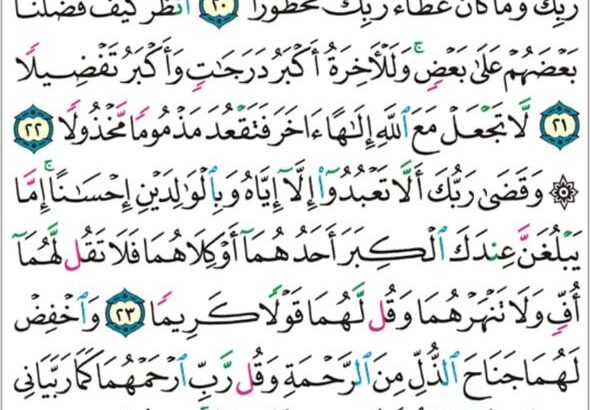 رَبِّكَ وَمَا كَانَ عَطَآءُ رَبِّكَ مَحۡظُورًا ٢٠ ٱنظُرۡ كَيۡفَ فَضَّلۡنَا
بَعۡضَهُمۡ عَلَىٰ بَعۡضٖۚ وَلَلۡأٓخِرَةُ أَكۡبَرُ دَرَجَٰتٖ وَأَكۡبَرُ تَفۡضِيلٗا
٢١ لَّا تَجۡعَلۡ مَعَ ٱللَّهِ إِلَٰهًا ءَاخَرَ فَتَقۡعُدَ مَذۡمُومٗا مَّخۡذُولٗا ٢٢
۞ وَقَضَىٰ رَبُّكَ أَلَّا تَعۡبُدُوٓاْ إِلَّآ إِيَّاهُ وَبِٱلۡوَٰلِدَيۡنِ إِحۡسَٰنًاۚ إِمَّا
يَبۡلُغَنَّ عِندَكَ ٱلۡكِبَرَ أَحَدُهُمَآ أَوۡ كِلَاهُمَا فَلَا تَقُل لَّهُمَآ
أُفّٖ وَلَا تَنۡهَرۡهُمَا وَقُل لَّهُمَا قَوۡلٗا كَرِيمٗا ٢٣ وَٱخۡفِضۡ
لَهُمَا جَنَاحَ ٱلذُّلِّ مِنَ ٱلرَّحۡمَةِ وَقُل رَّبِّ ٱرۡحَمۡهُمَا كَمَا رَبَّيَانِي